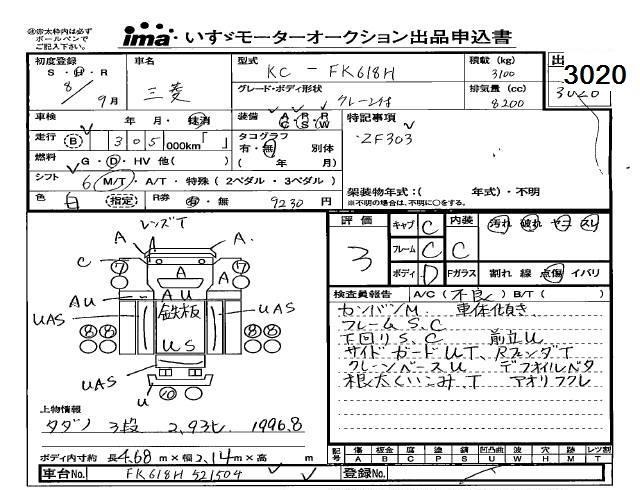 ㊟※太枠内は必ず
ボールペンで
ご記入下さい。
ima いすゞモーターオークション出品申込書
初度登録 車名 型式 積載 (kg) 出
S・H・R 三菱 KC - FK618H 3100
8/9月 グレード・ボディ形状 排気量 (cc) 3020
クレーン付 8200 3020
車検 年・月・抹消 装備 A/C R/S R/W 特記事項
走行 B 305,000km「 」 タコグラフ ZF303
有・無 別体
燃料 G・D・HV 他( ) ( 年 月)
シフト 6 M/T・A/T・特殊 (2ペダル・3ペダル) 架装物年式:( 年式)・不明
色 白 (指定) R券 有・無 9230 円 ※不明の場合は、不明に○をする。
レンズT
A A.
C ⑦ ⑦ A
A
AU AU
UAS 鉄板 UAS
⑧⑧ ⑧⑧
US
UAS
U
⑩
評価 キャブ C 内装 汚れ・破れ・ヤニ・スレ
3 フレーム C C
ボディ D Fガラス 割れ 線 点傷 イバリ
検査員報告 A/C (不良) B/T ( )
カンバンM 車体傾き
フレームS、C
下回りS、C 前立U
サイドガードUT、RフェンダT
クレーンベースU デフオイルベタ
根太くいこみ、T アオリフクレ
上物情報
タダノ 3段 2,93t 1996.8
ボディ内寸約 長 4.68 m×幅 2.14 m×高 m
記号 傷 板金 腐 塗 錆 凹凸曲 波 穴 跡 レツ割
A B C P S U W H M T
車台No. FK618H 521504 登録No.